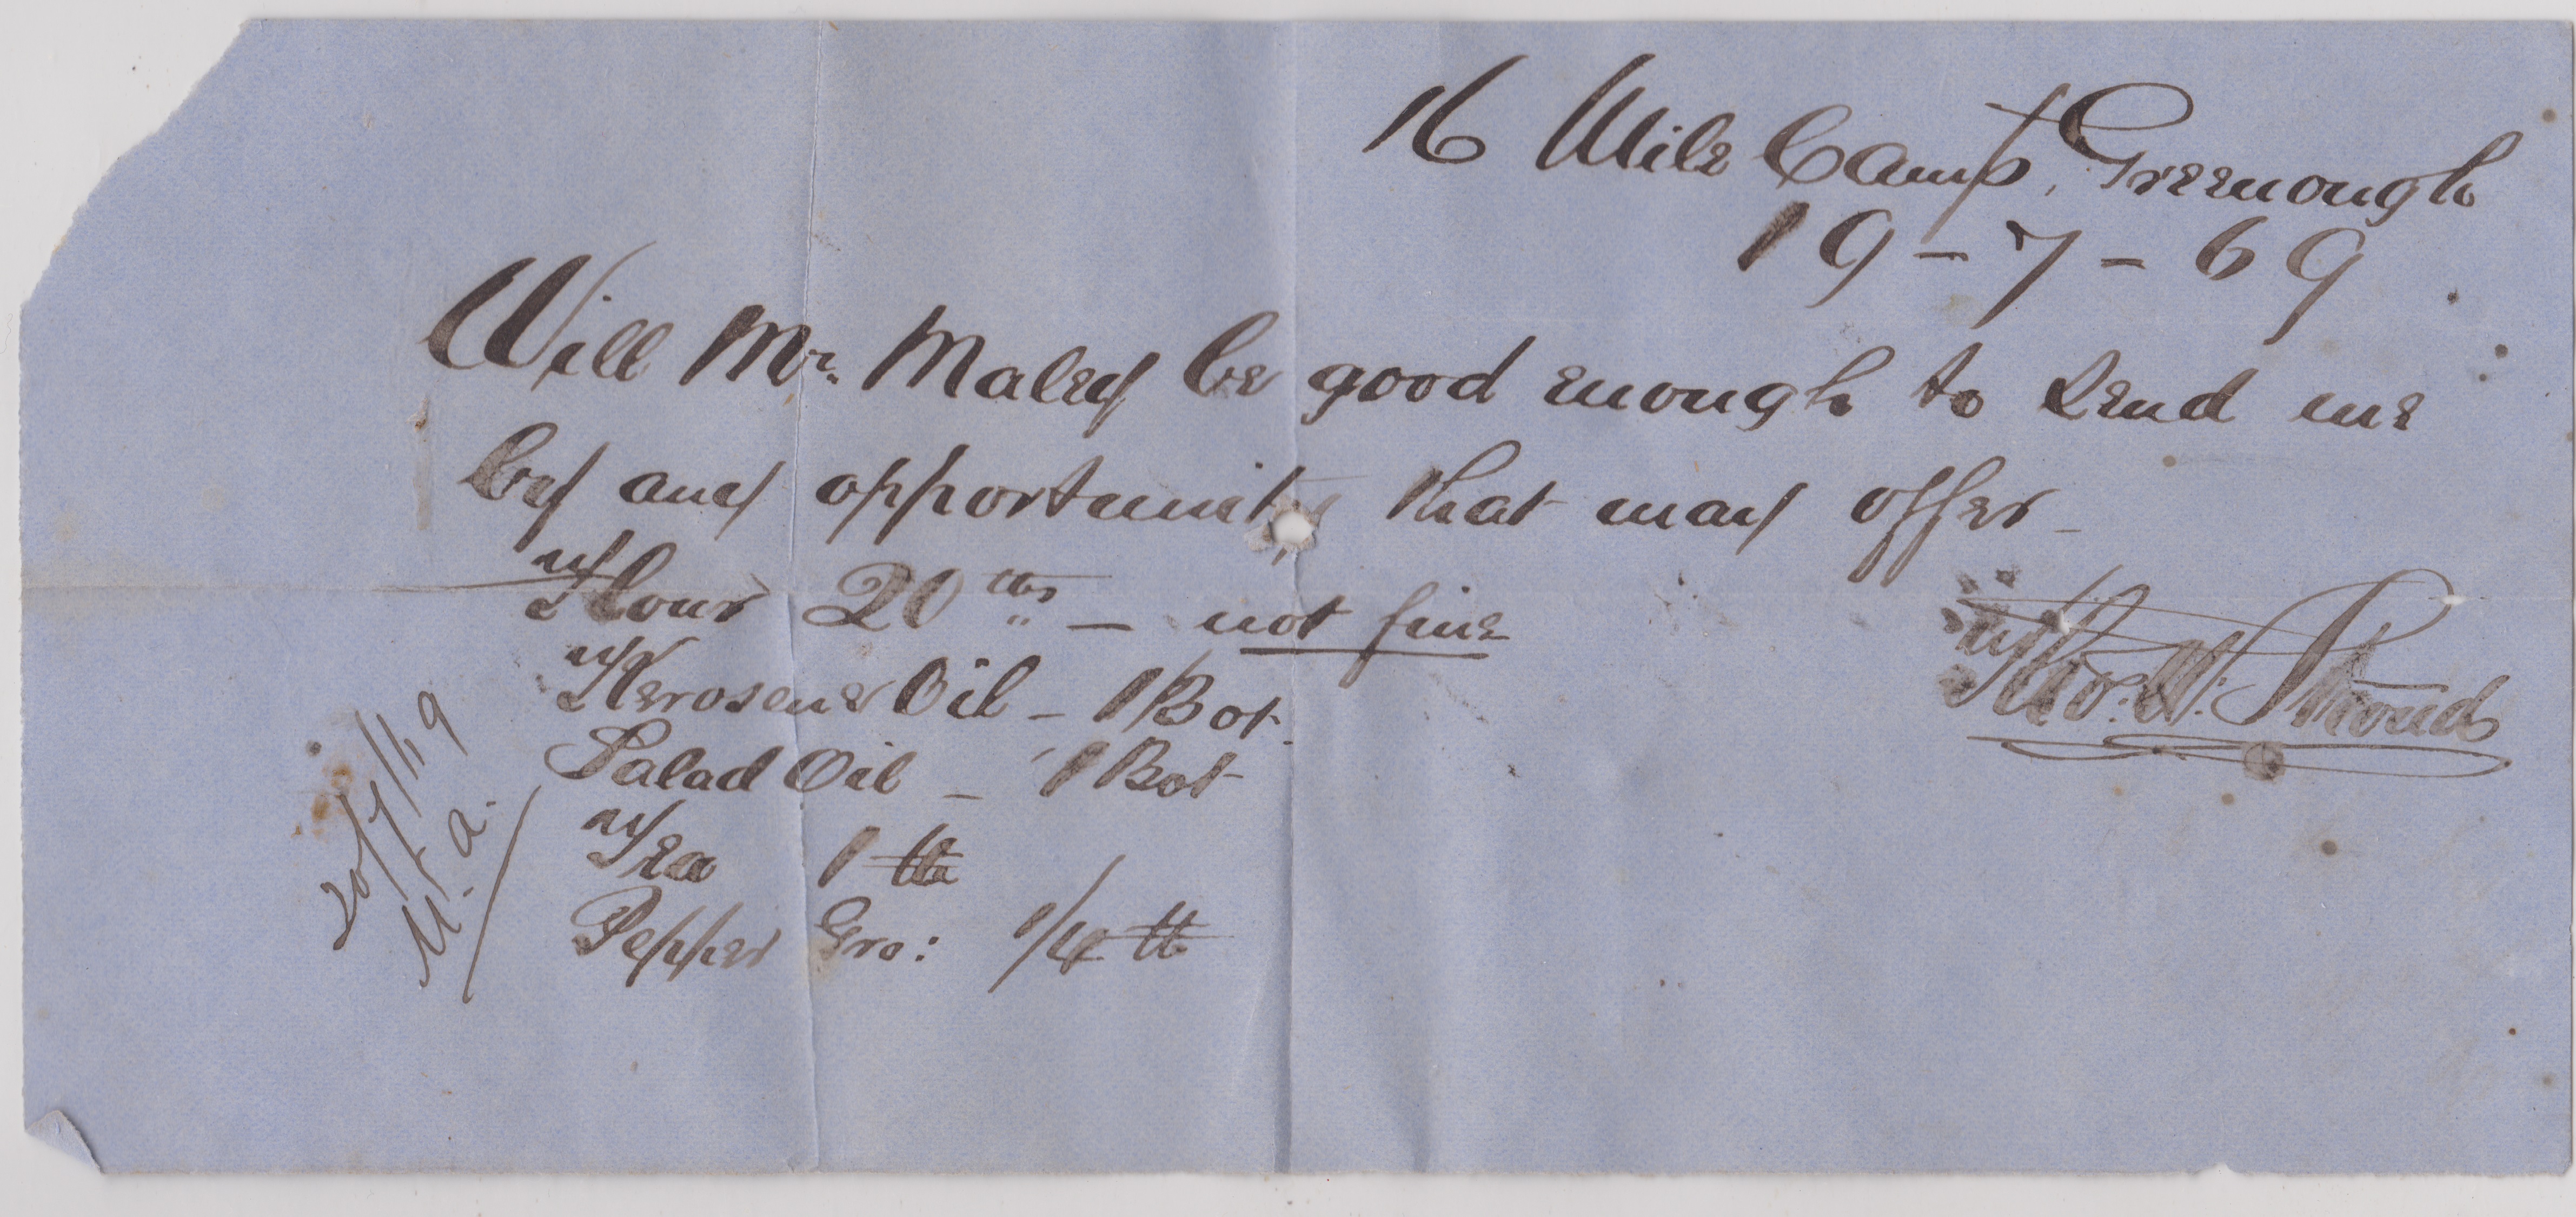 16 Mile Camp, Greenough
19-7-69
Will Mr. Maley be good enough to send me
by any opportunity that may offer -
Flour 20 lbs - not fine
Kerosene Oil - 1 Bot.
Salad Oil - 1 Bot
Tea 1 lb
Pepper Gro: 1/4 lb
Tho. W. Stroud
20/7/69